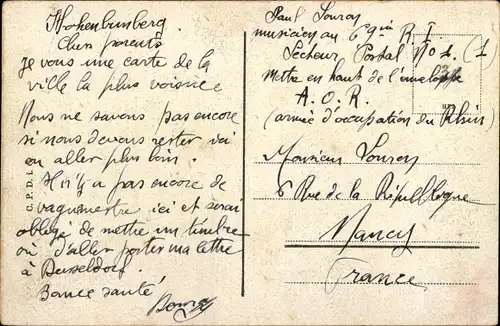 Hohenbunsberg.
Chers parents
Je vous une carte de la
ville la plus voisine
Nous ne savons pas encore
si nous devons rester ici
ou aller plus loin.
Il n'y a pas encore de
vaguemestre ici et serai
obligé de mettre un timbre
où d'aller porter ma lettre
à Dusseldorf.
Bonne santé,
C.P.D.
Paul
musicien au 69ème R.I.
Secteur Postal No
Mettre en haut de l'enveloppe
A.O.R.
(armée d'occupation du Rhin)
Monsieur
6 Rue de la République
Nancy
France